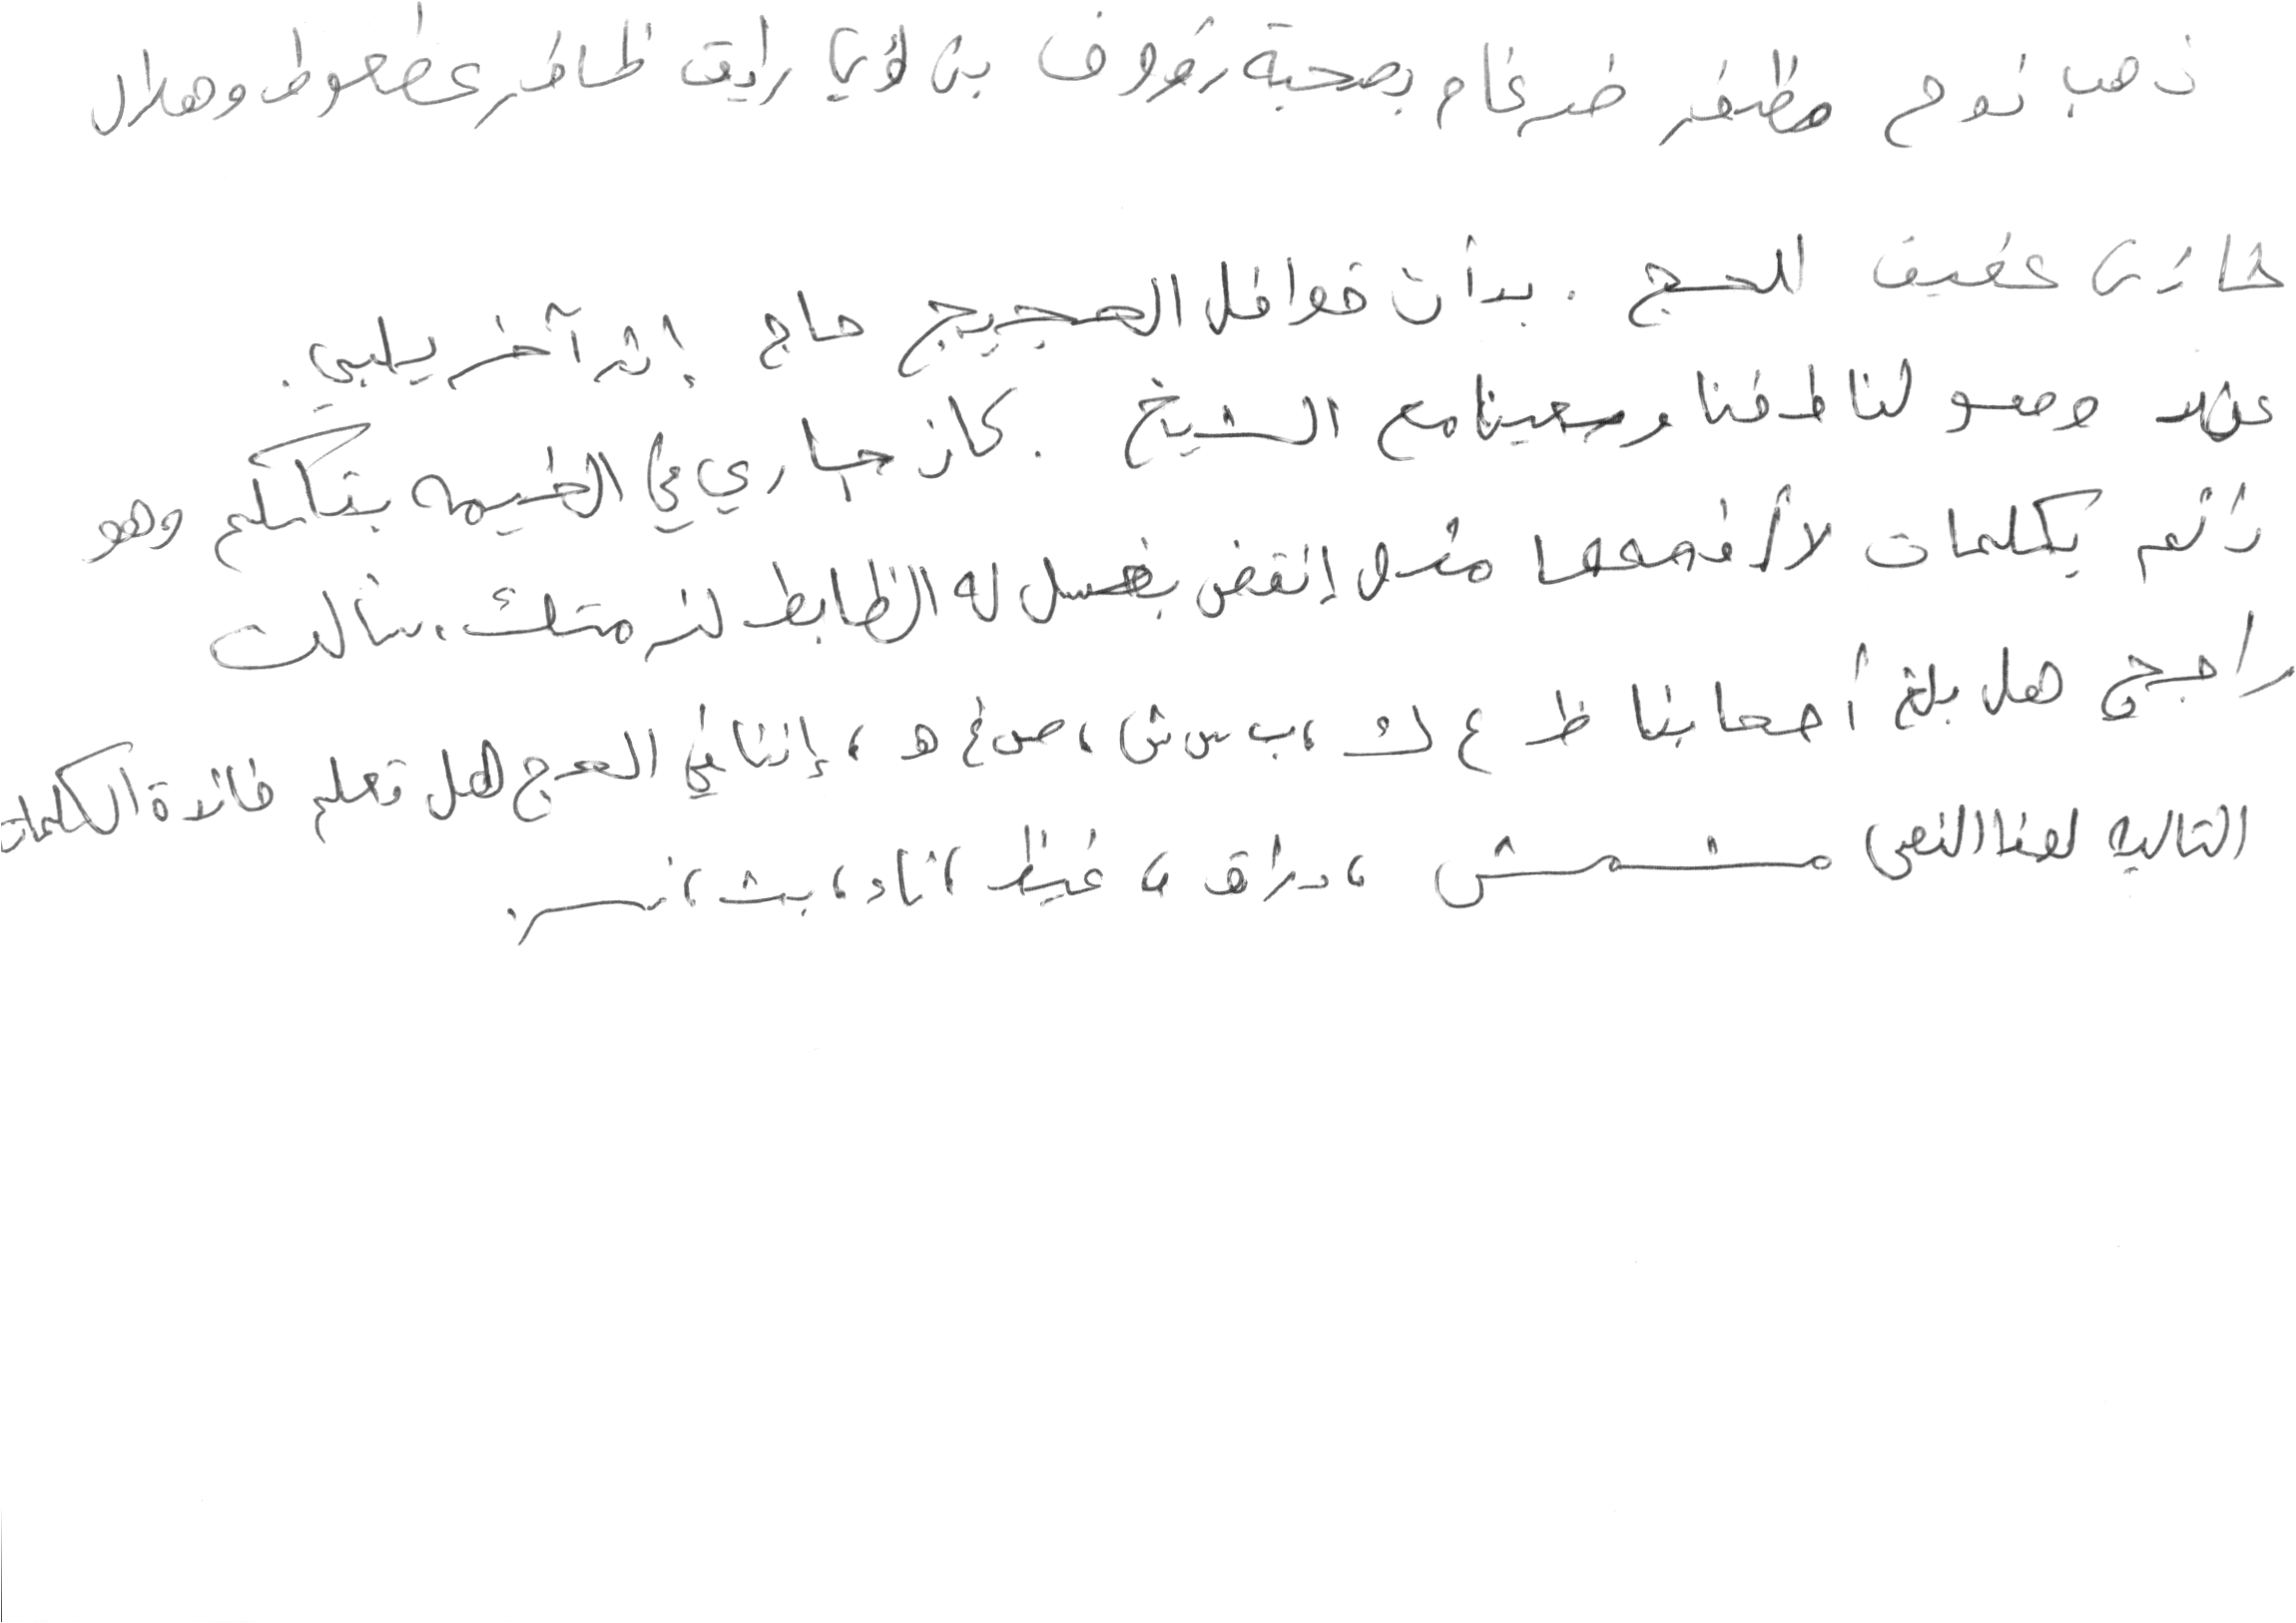 ذهب نوح مظفر ضرغام بصحبة رؤوف بن لؤي رايق ظافر عضعوط وهلال
خازن عفيف للحج . بدأت قوافل الحجيج حاج إثر آخر يلبي .
وضعو لنا طفنا وسعينا مع الشيخ . كان جاري في الخيمه يتكلم وهو
نائم بكلمات لا أفهمها مثل إنقض بغسل له الظابط لزمتك ، سألت
راجح هل بلغ أصحابنا ظ ع ك ، ب س ش ، ص غ ه ، إننا في الحج هل تعلم فائدة الكلمات
التاليه لهذا النص مشمش ، دراق ، غيظ ، ناد ، بث ، نز .